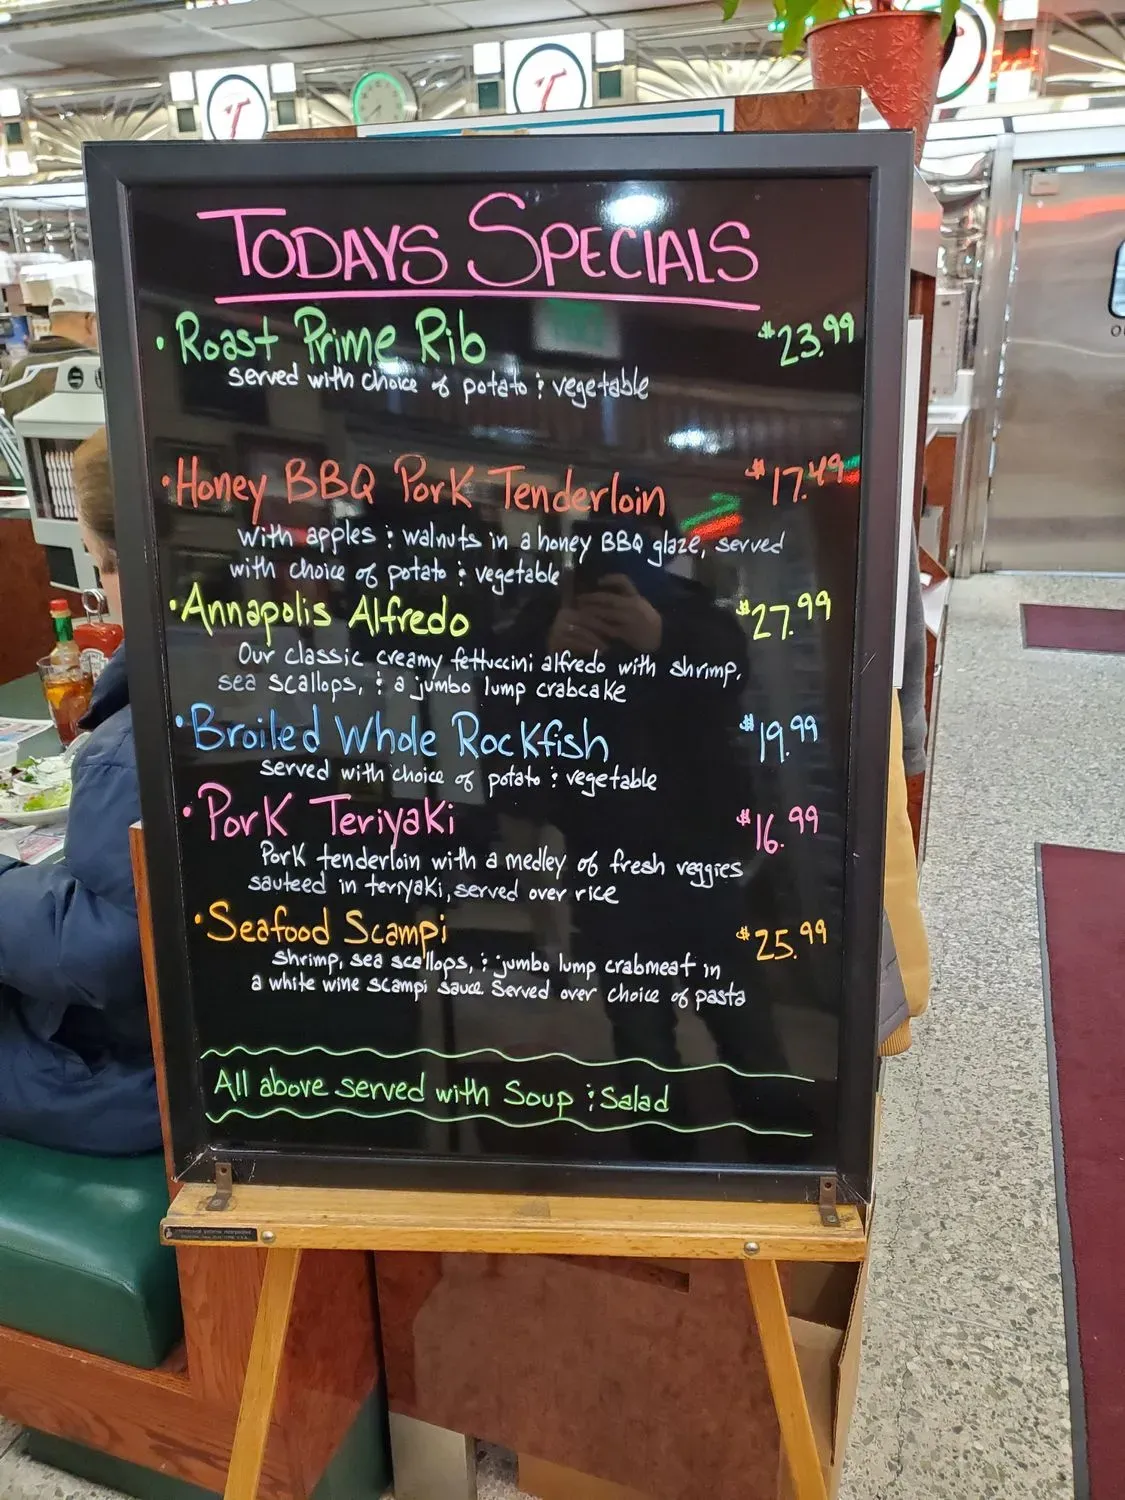 TODAYS SPECIALS
• Roast Prime Rib $23.99
served with choice of potato & vegetable
• Honey BBQ Pork Tenderloin $17.49
with apples & walnuts in a honey BBQ glaze, served
with choice of potato & vegetable
• Annapolis Alfredo $27.99
Our classic creamy fettuccini alfredo with shrimp,
sea scallops, & a jumbo lump crabcake
• Broiled Whole Rockfish $19.99
served with choice of potato & vegetable
• Pork Teriyaki $16.99
Pork tenderloin with a medley of fresh veggies
sauteed in teriyaki, served over rice
• Seafood Scampi $25.99
shrimp, sea scallops, & jumbo lump crabmeat in
a white wine scampi sauce. Served over choice of pasta
All above served with Soup & Salad